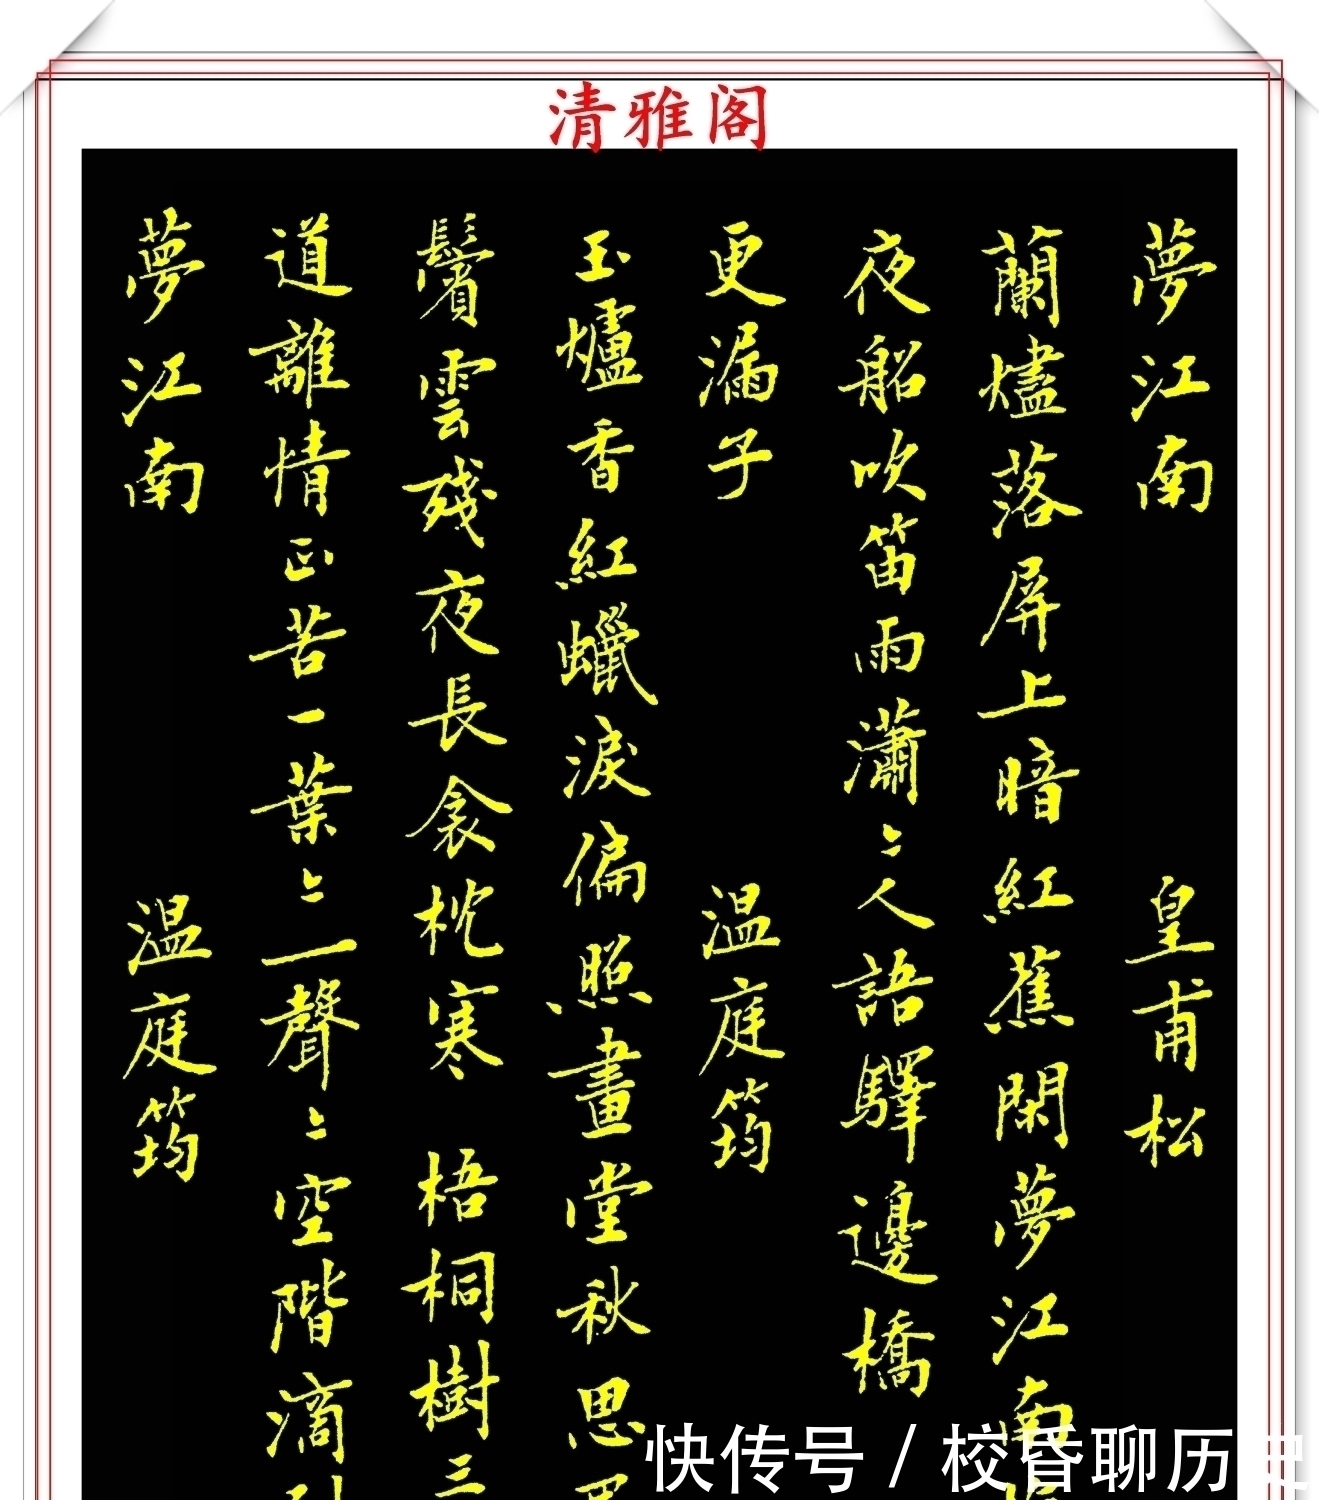 清雅阁
夢江南 皇甫松
蘭燼落屏上暗紅蕉閑夢江南
夜船吹笛雨瀟〻人語驛邊橋
更漏子 温庭筠
玉爐香紅蠟淚偏照畫堂秋思
鬢雲殘夜長衾枕寒 梧桐樹三
道離情正苦一葉〻一聲〻空階滴到
夢江南 温庭筠
快传号 / 校昏聊历史